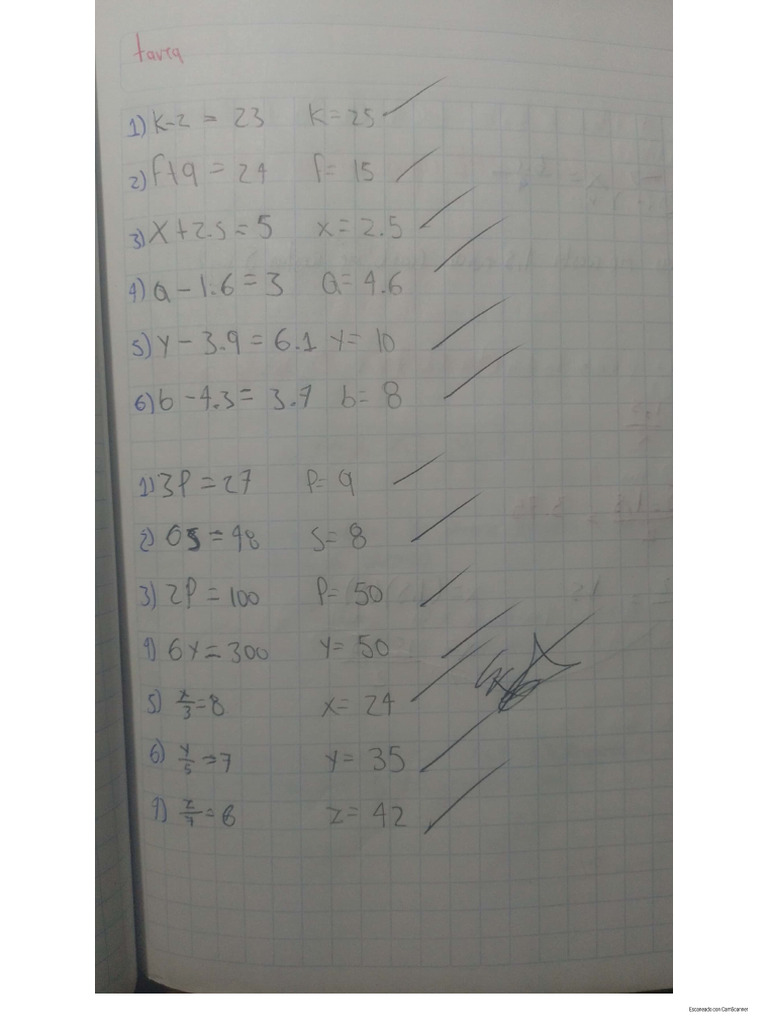 tarea
1) K-2 = 23 K=25
2) f+9 = 24 f= 15
3) X+2.5=5 x=2.5
4) a-1.6=3 a=4.6
5) y-3.9=6.1 y=10
6) b-4.3= 3.7 b= 8
1) 3P=27 P= 9
2) 6s=48 s=8
3) 2P=100 P= 50
4) 6y=300 y= 50
5) x/3=8 x= 24
6) y/5=7 y= 35
7) z/7=6 z= 42
Escaneado con CamScanner